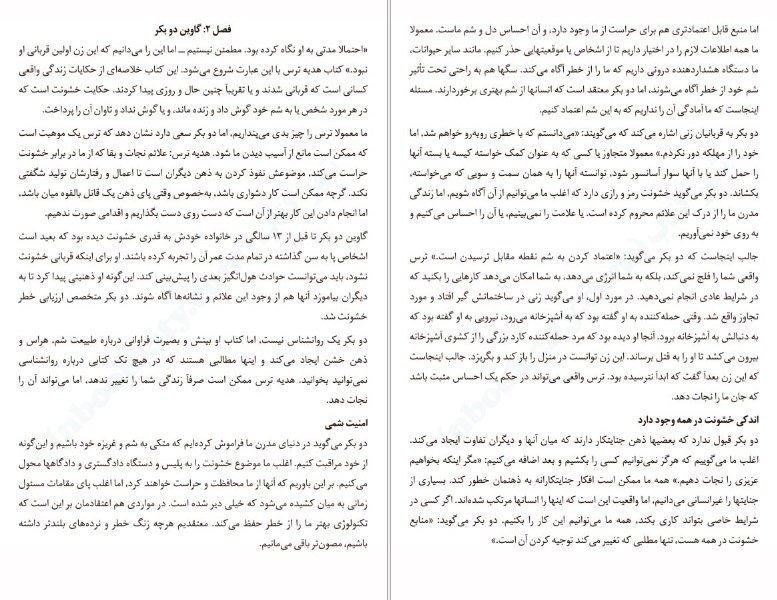 فصل ۲: گاوین دو بکر
«احتمالا مدتی به او نگاه کرده بود. مطمئن نیستیم ــ اما این را می‌دانیم که این زن اولین قربانی او
نبود.» کتاب هدیه ترس با این عبارت شروع می‌شود. این کتاب خلاصه‌ای از حکایات زندگی واقعی
کسانی است که قربانی شدند و یا تقریباً چنین حال و روزی پیدا کردند. حکایت خشونت است که
در هر مورد شخص یا به شم خود گوش داد و زنده ماند، و یا گوش نداد و تاوان آن را پرداخت.
ما معمولا ترس را چیز بدی می‌پنداریم، اما دو بکر سعی دارد نشان دهد که ترس یک موهبت است
که ممکن است مانع از آسیب دیدن ما شود. هدیه ترس: علائم نجات و بقا که از ما در برابر خشونت
حراست می‌کند، موضوعش نفوذ کردن به ذهن دیگران است تا اعمال و رفتارشان تولید شگفتی
نکند. گرچه ممکن است کار دشواری باشد، به‌خصوص وقتی پای ذهن یک قاتل بالقوه میان باشد،
اما انجام دادن این کار بهتر از آن است که دست روی دست بگذاریم و اقدامی صورت ندهیم.
گاوین دو بکر تا قبل از ۱۳ سالگی در خانواده خودش به قدری خشونت دیده بود که بعید است
اشخاص پا به سن گذاشته در تمام مدت عمر آن را تجربه کرده باشند. او برای اینکه قربانی خشونت
نشود، باید می‌توانست حوادث هول‌انگیز بعدی را پیش‌بینی کند. این‌گونه او ذهنیتی پیدا کرد تا به
دیگران بیاموزد آنها هم از وجود این علائم و نشانه‌ها آگاه شوند. دو بکر متخصص ارزیابی خطر
خشونت شد.
دو بکر یک روانشناس نیست، اما کتاب او بینش و بصیرت فراوانی درباره طبیعت شم، هراس و
ذهن خشن ایجاد می‌کند و اینها مطالبی هستند که در هیچ تک کتابی درباره روانشناسی
نمی‌توانید بخوانید. هدیه ترس ممکن است صرفاً زندگی شما را تغییر ندهد، اما می‌تواند آن را
نجات دهد.
امنیت شمی
دو بکر می‌گوید در دنیای مدرن ما فراموش کرده‌ایم که متکی به شم و غریزه خود باشیم و این‌گونه
از خود مراقبت کنیم. اغلب ما موضوع خشونت را به پلیس و دستگاه دادگستری و دادگاهها محول
می‌کنیم. بر این باوریم که آنها از ما محافظت و حراست خواهند کرد، اما اغلب پای مقامات مسئول
زمانی به میان کشیده می‌شود که خیلی دیر شده است. در مواردی هم اعتقادمان بر این است که
تکنولوژی بهتر ما را از خطر حفظ می‌کند. معتقدیم هرچه زنگ خطر و نرده‌های بلندتر داشته
باشیم، مصون‌تر باقی می‌مانیم.
اما منبع قابل اعتمادتری هم برای حراست از ما وجود دارد، و آن احساس دل و شم ماست. معمولا
ما همه اطلاعات لازم را در اختیار داریم تا از اشخاص یا موقعیتهایی حذر کنیم. مانند سایر حیوانات،
ما دستگاه هشداردهنده درونی داریم که ما را از خطر آگاه می‌کند. سگها هم به راحتی تحت تأثیر
شم خود از خطر آگاه می‌شوند، اما دو بکر معتقد است که انسانها از شم بهتری برخوردارند. مسئله
اینجاست که ما آمادگی آن را نداریم که به این شم اعتماد کنیم.
دو بکر به قربانیان زنی اشاره می‌کند که می‌گویند: «می‌دانستم که با خطری روبه‌رو خواهم شد، اما
خود را از مهلکه دور نکردم.» معمولا متجاوز یا کسی که به عنوان کمک خواسته کیسه یا بسته آنها
را حمل کند یا با آنها سوار آسانسور شود، توانسته آنها را به همان سمت و سویی که می‌خواسته،
بکشاند. دو بکر می‌گوید خشونت رمز و رازی دارد که اغلب ما می‌توانیم از آن آگاه شویم، اما زندگی
مدرن ما را از درک این علائم محروم کرده است. یا علامت را نمی‌بینیم، یا آن را احساس می‌کنیم و
به روی خود نمی‌آوریم.
جالب اینجاست که دو بکر می‌گوید: «اعتماد کردن به شم نقطه مقابل ترسیدن است.» ترس
واقعی شما را فلج نمی‌کند، بلکه به شما انرژی می‌دهد، به شما امکان می‌دهد کارهایی را بکنید که
در شرایط عادی انجام نمی‌دهید. در مورد اول، او می‌گوید زنی در ساختمانش گیر افتاد و مورد
تجاوز واقع شد. وقتی حمله‌کننده به او گفته بود که به آشپزخانه می‌رود، نیرویی به او گفته بود که
به دنبالش به آشپزخانه برود. آنجا او دیده بود که مرد حمله‌کننده کارد بزرگی را از کشوی آشپزخانه
بیرون می‌کشد تا او را به قتل برساند. این زن توانست در منزل را باز کند و بگریزد. جالب اینجاست
که این زن بعداً گفت که ابداً نترسیده بود. ترس واقعی می‌تواند در حکم یک احساس مثبت باشد
که جان ما را نجات دهد.
اندکی خشونت در همه وجود دارد
دو بکر قبول ندارد که بعضیها ذهن جنایتکار دارند که میان آنها و دیگران تفاوت ایجاد می‌کند.
اغلب ما می‌گوییم که هرگز نمی‌توانیم کسی را بکشیم و بعد اضافه می‌کنیم: «مگر اینکه بخواهیم
عزیزی را نجات دهیم.» همه ما ممکن است افکار جنایتکارانه به ذهنمان خطور کند. بسیاری از
جنایتها را غیرانسانی می‌دانیم، اما واقعیت این است که اینها را انسانها مرتکب شده‌اند. اگر کسی در
شرایط خاصی بتواند کاری بکند، همه ما می‌توانیم این کار را بکنیم. دو بکر می‌گوید: «منابع
خشونت در همه هست، تنها مطلبی که تغییر می‌کند توجیه کردن آن است.»